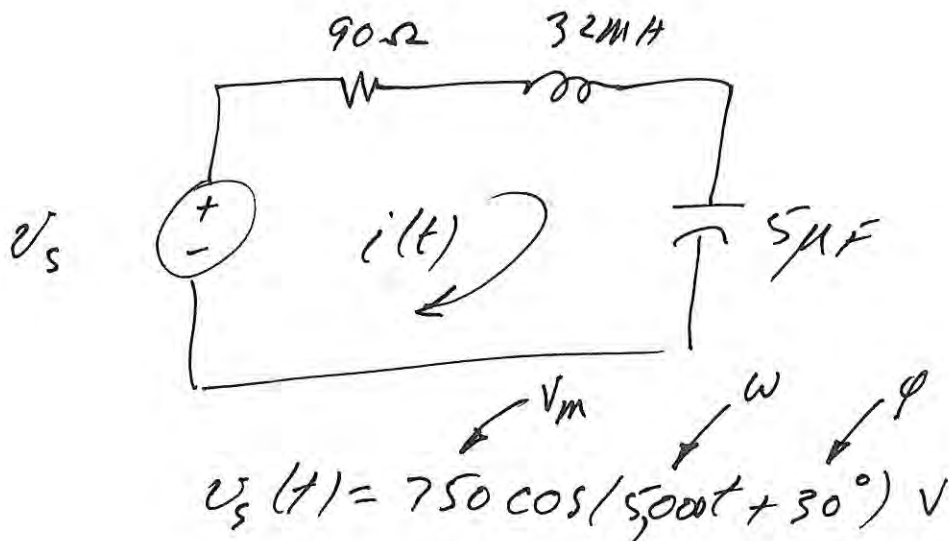 90Ω 32mH
+
-
v_s i(t) 5μF
V_m ω φ
v_s(t) = 750 cos(5,000t + 30°) V